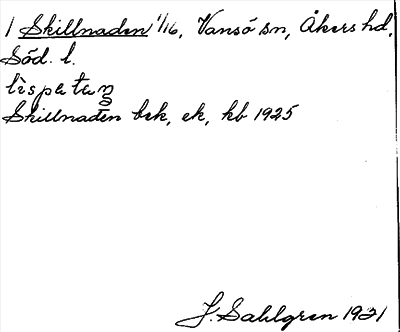 1 Skillnaden 1/16, Vansö sn, Åkers hd,
Söd. l.
Skillnaden bek, ek, kb 1925
J. Sahlgren 1921